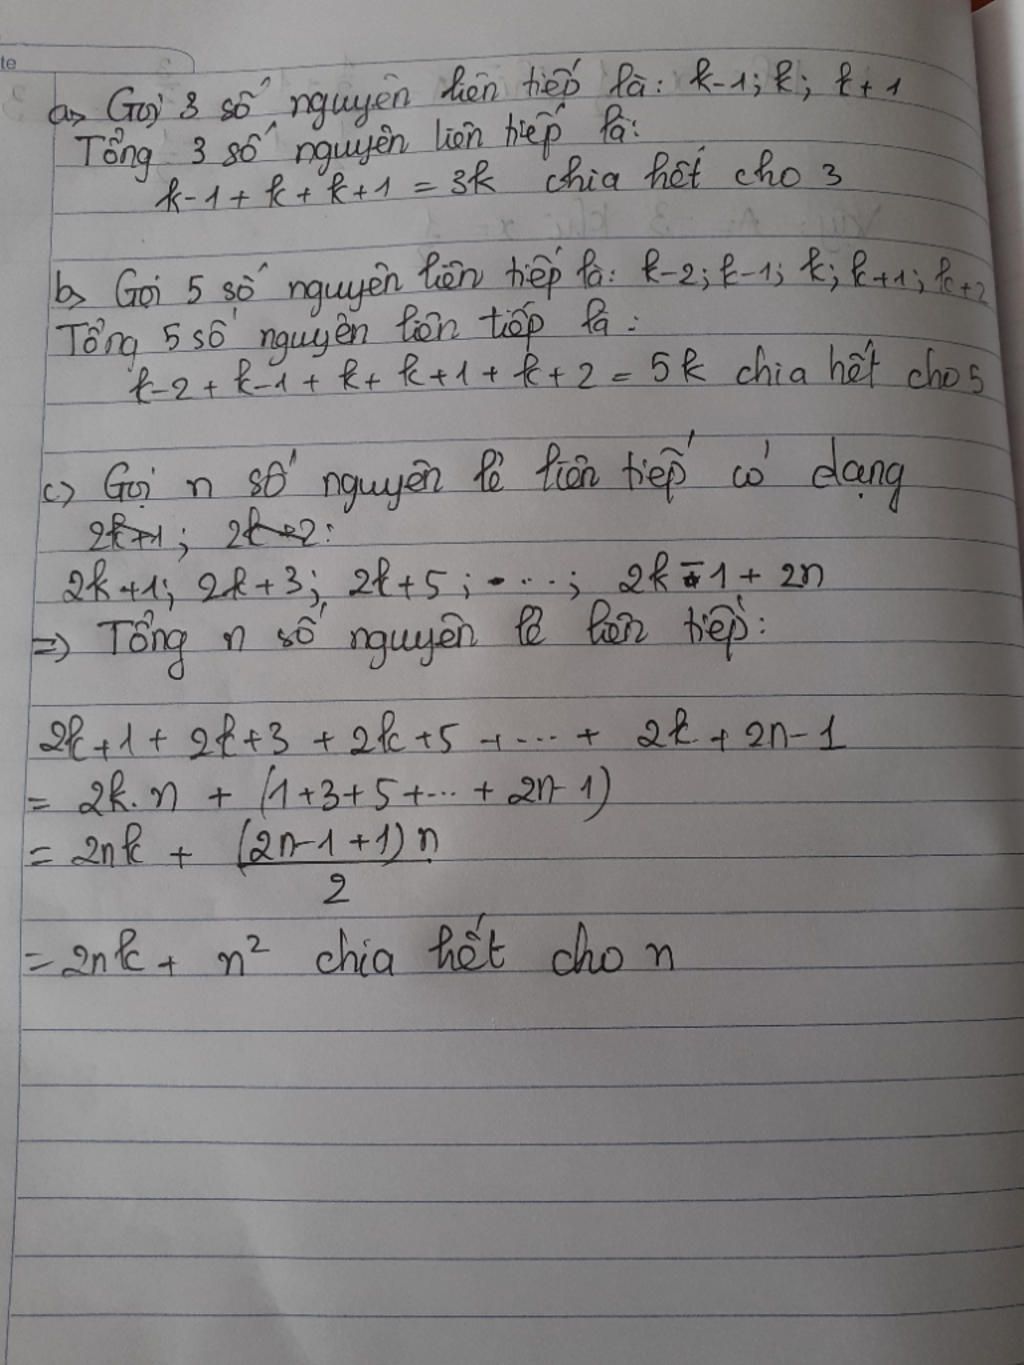 te
a, Gọi 3 số nguyên liên tiếp là: k-1; k; k+1
Tổng 3 số nguyên liên tiếp là:
k-1 + k + k+1 = 3k chia hết cho 3
b, Gọi 5 số nguyên liên tiếp là: k-2; k-1; k; k+1; k+2
Tổng 5 số nguyên liên tiếp là:
k-2 + k-1 + k + k+1 + k+2 = 5k chia hết cho 5
c, Gọi n số nguyên lẻ liên tiếp có dạng
2k+1; 2k+2:
2k+1; 2k+3; 2k+5; ....; 2k-1+2n
=> Tổng n số nguyên lẻ liên tiếp:
2k+1 + 2k+3 + 2k+5 + ... + 2k + 2n-1
= 2k.n + (1+3+5+...+ 2n-1)
= 2nk + (2n-1+1)n
2
= 2nk + n² chia hết cho n